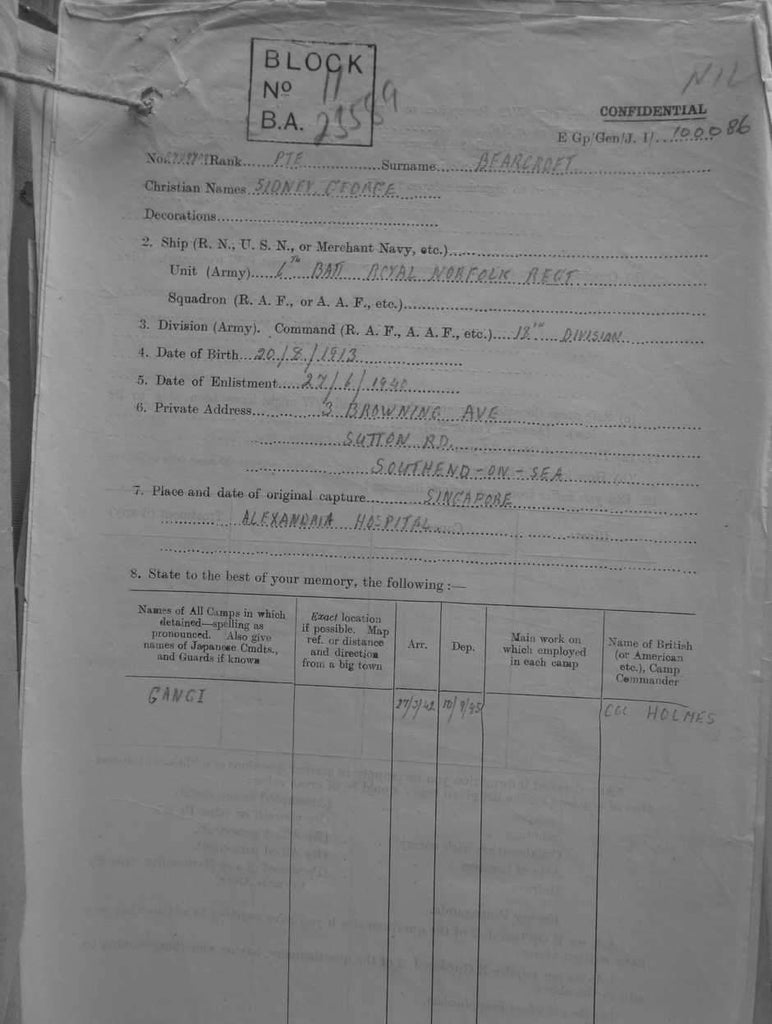 NIL
BLOCK
Nº 11
B.A. 23559
CONFIDENTIAL
E Gp/Gen/J. 1/....100086
No. Rank....PTE....Surname....BEARCROFT
Christian Names SIDNEY GEORGE
Decorations
2. Ship (R. N., U. S. N., or Merchant Navy, etc.)
Unit (Army)....6TH BATT ROYAL NORFOLK REGT
Squadron (R. A. F., or A. A. F., etc.)
3. Division (Army). Command (R. A. F., A. A. F., etc.)....18TH DIVISION
4. Date of Birth....20/8/1913
5. Date of Enlistment....27/6/1940
6. Private Address....3 BROWNING AVE
SUTTON RD.
SOUTHEND-ON-SEA
7. Place and date of original capture....SINGAPORE
ALEXANDRIA HOSPITAL
8. State to the best of your memory, the following :—
Names of All Camps in which detained—spelling as pronounced. Also give names of Japanese Cmdts., and Guards if known
Exact location if possible. Map ref. or distance and direction from a big town
Arr.
Dep.
Main work on which employed in each camp
Name of British (or American etc.), Camp Commander
GANGI 27/3/42 10/9/45 COL HOLMES